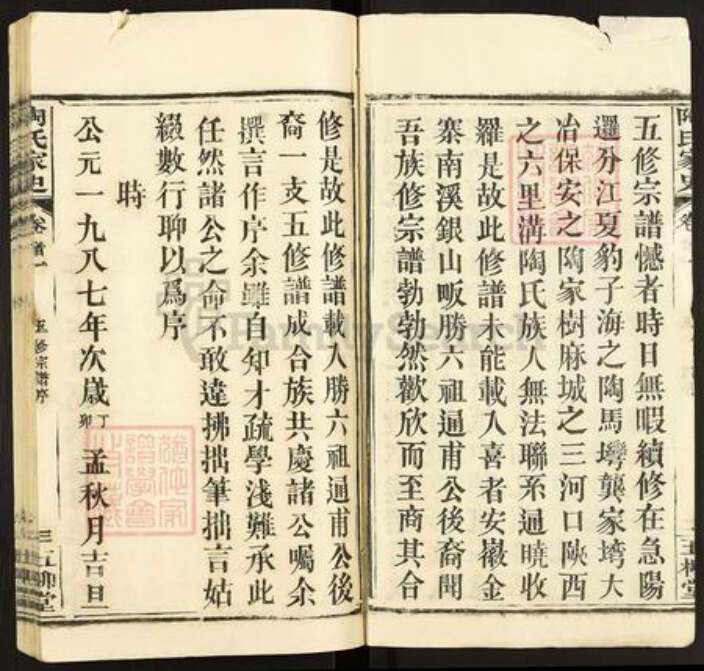 五修宗譜憾者時日無暇續修在急陽
邏分江夏豹子海之陶馬塆龔家塆大
冶保安之陶家樹麻城之三河口陝西
之六里溝陶氏族人無法聯系通曉收
羅是故此修譜未能載入喜者安徽金
寨南溪銀山畈勝六祖通甫公後裔聞
吾族修宗譜勃勃然歡欣而至商其合
陶氏家史
卷首一
五修宗譜序
三
五柳堂
修是故此修譜載入勝六祖通甫公後
裔一支五修譜成合族共慶諸公囑余
撰言作序余雖自知才疏學淺難承此
任然諸公之命不敢違拂拙筆拙言姑
綴數行聊以爲序
時
公元一九八七年次歲丁卯孟秋月吉旦
陶氏家史
五柳堂
FamilySearch